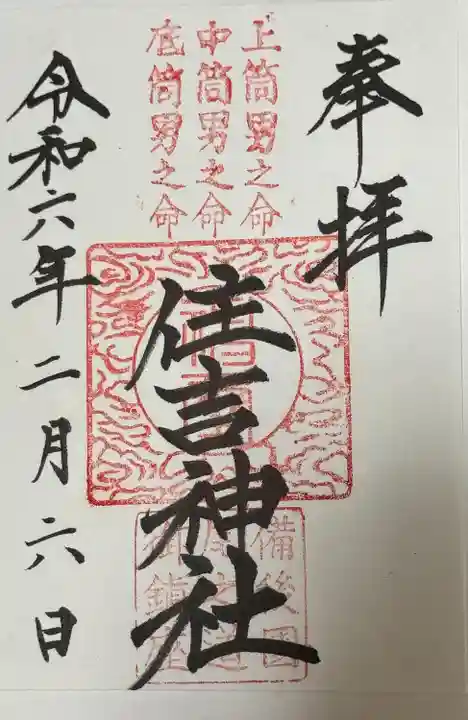 奉拝
上筒男之命
中筒男之命
底筒男之命
住吉神社
備後國
尾之道
御鎮座
令和六年二月六日